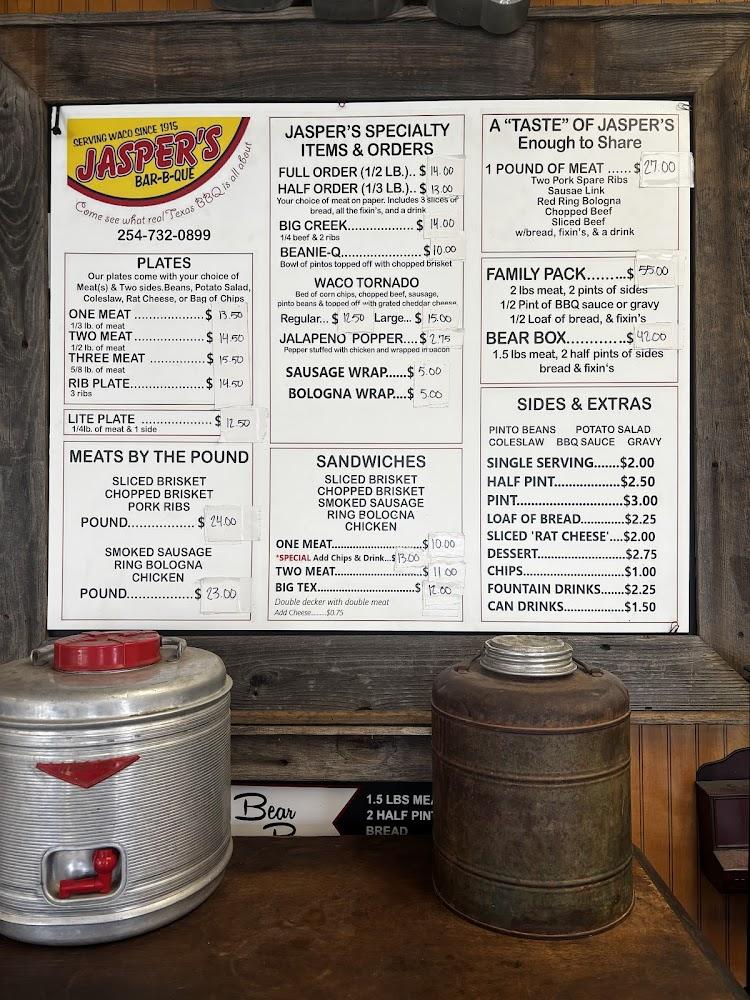 SERVING WACO SINCE 1915
JASPER'S
BAR-B-QUE
Come see what real Texas BBQ is all about
254-732-0899
PLATES
Our plates come with your choice of
Meat(s) & Two sides.Beans, Potato Salad,
Coleslaw, Rat Cheese, or Bag of Chips
ONE MEAT ................ $ 13.50
1/3 lb. of meat
TWO MEAT ................ $ 14.50
1/2 lb. of meat
THREE MEAT ............ $ 15.50
5/8 lb. of meat
RIB PLATE................. $ 14.50
3 ribs
LITE PLATE ................ $ 12.50
1/4lb. of meat & 1 side
MEATS BY THE POUND
SLICED BRISKET
CHOPPED BRISKET
PORK RIBS
POUND................ $ 24.00
SMOKED SAUSAGE
RING BOLOGNA
CHICKEN
POUND................ $ 23.00
JASPER'S SPECIALTY
ITEMS & ORDERS
FULL ORDER (1/2 LB.).. $ 14.00
HALF ORDER (1/3 LB.).. $ 13.00
Your choice of meat on paper. Includes 3 slices of
bread, all the fixin's, and a drink
BIG CREEK................... $ 14.00
1/4 beef & 2 ribs
BEANIE-Q..................... $ 10.00
Bowl of pintos topped off with chopped brisket
WACO TORNADO
Bed of corn chips, chopped beef, sausage,
pinto beans & topped off with grated cheddar cheese
Regular... $ 12.50 Large... $ 15.00
JALAPENO POPPER....$ 2.75
Pepper stuffed with chicken and wrapped in bacon
SAUSAGE WRAP.....$ 5.00
BOLOGNA WRAP....$ 5.00
SANDWICHES
SLICED BRISKET
CHOPPED BRISKET
SMOKED SAUSAGE
RING BOLOCNA
CHICKEN
ONE MEAT....................$ 10.00
*SPECIAL Add Chips & Drink...$ 13.00
TWO MEAT....................$ 11.00
BIG TEX........................$ 12.00
Double decker with double meat
Add Cheese........$0.75
A "TASTE" OF JASPER'S
Enough to Share
1 POUND OF MEAT ..... $ 27.00
Two Pork Spare Ribs
Sausae Link
Red Ring Bologna
Chopped Beef
Sliced Beef
w/bread, fixin's, & a drink
FAMILY PACK........$ 55.00
2 lbs meat, 2 pints of sides
1/2 Pint of BBQ sauce or gravy
1/2 Loaf of bread, & fixin's
BEAR BOX............$ 42.00
1.5 lbs meat, 2 half pints of sides
bread & fixin's
SIDES & EXTRAS
PINTO BEANS POTATO SALAD
COLESLAW BBQ SAUCE GRAVY
SINGLE SERVING.......$2.00
HALF PINT.................$2.50
PINT..........................$3.00
LOAF OF BREAD.........$2.25
SLICED 'RAT CHEESE'....$2.00
DESSERT...................$2.75
CHIPS........................$1.00
FOUNTAIN DRINKS......$2.25
CAN DRINKS..............$1.50
Bear
1.5 LBS
2 HALF
BREAD